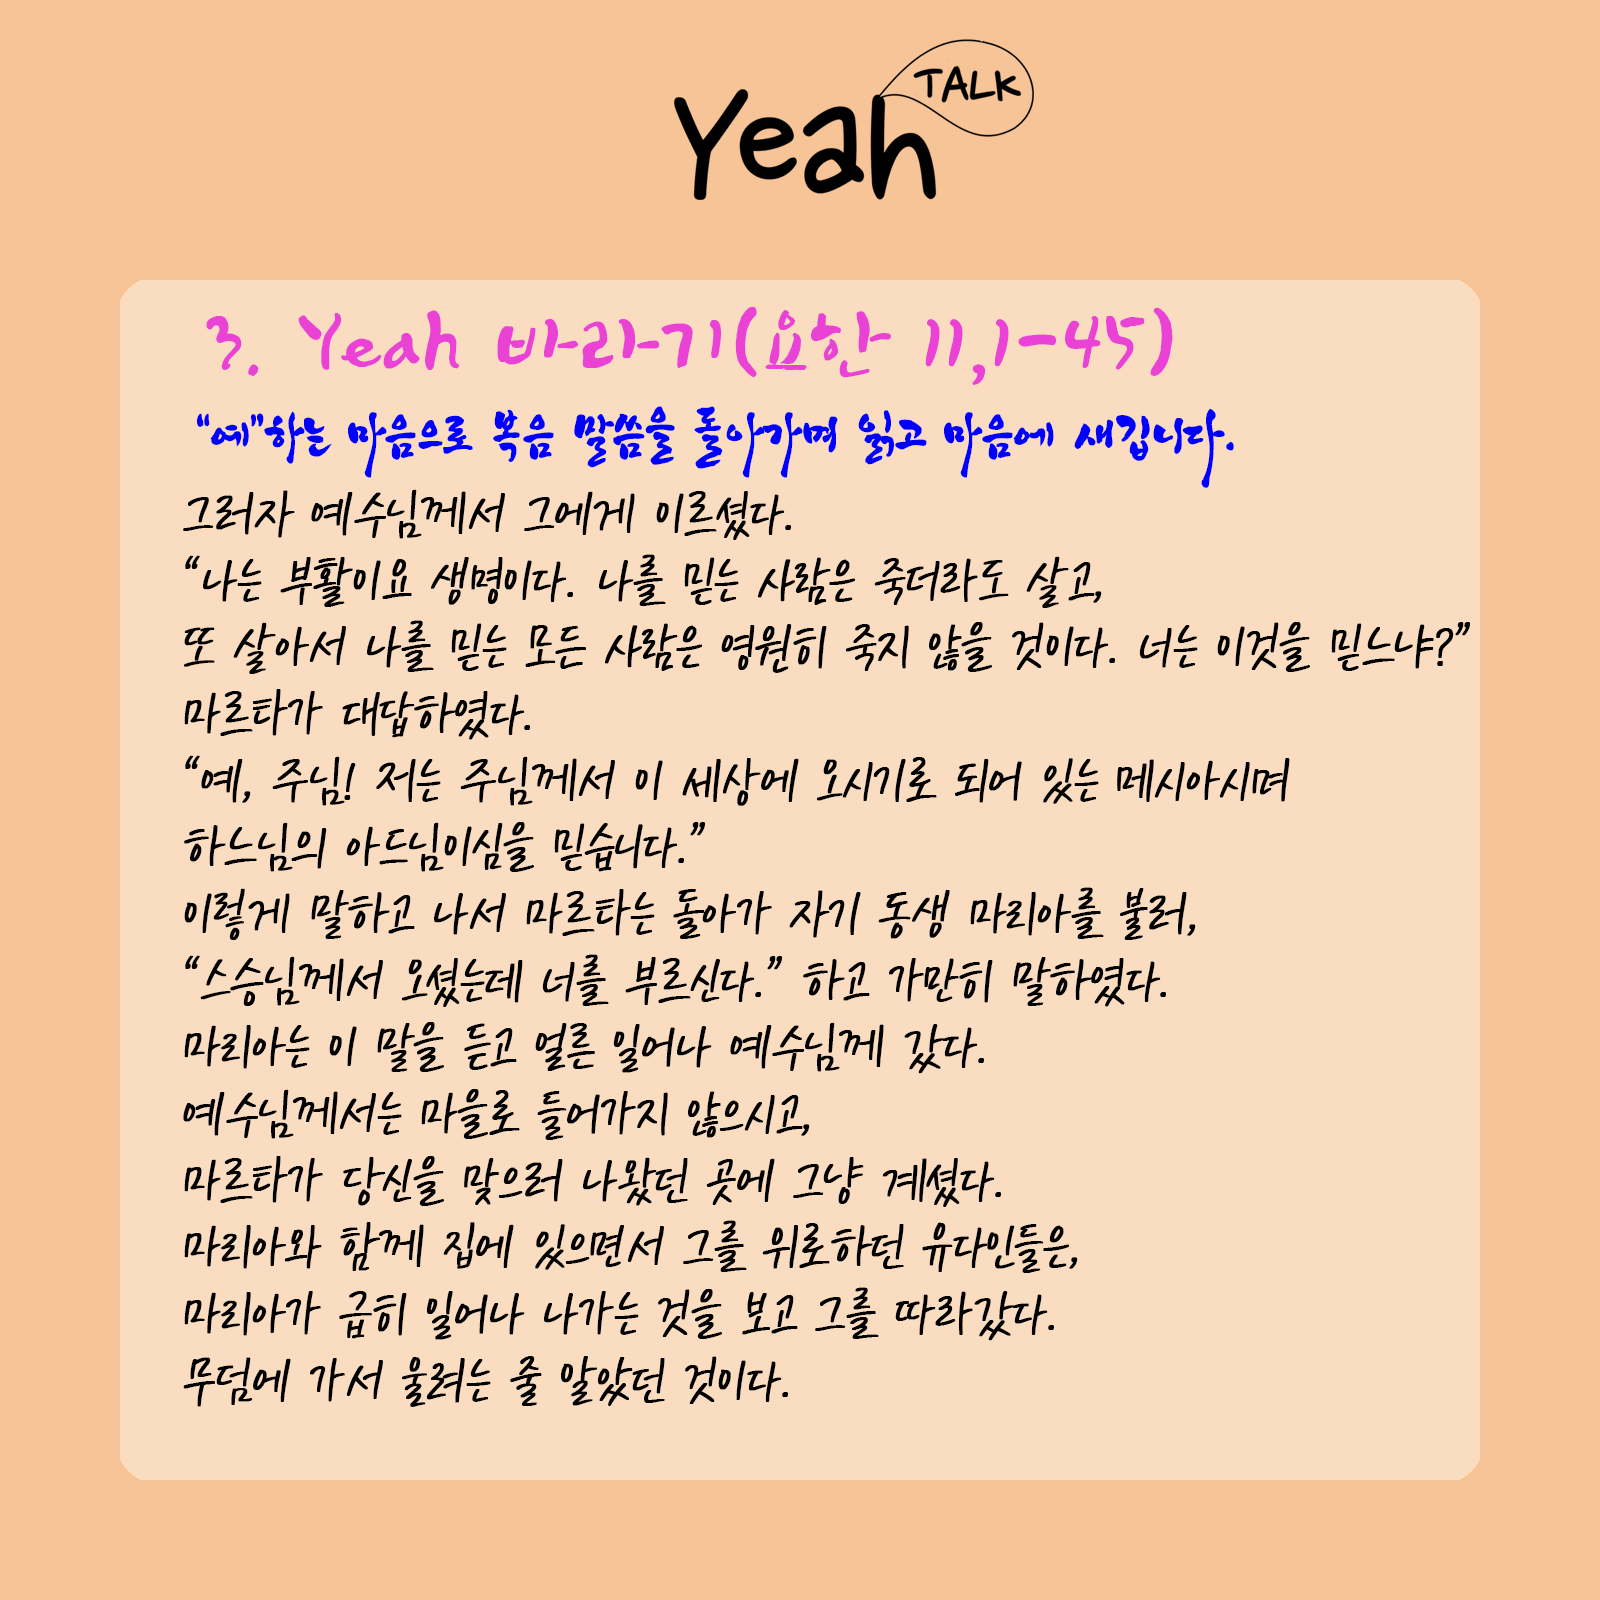 Yeah TALK
3. Yeah 바라기(요한 11,1-45)
“예”하는 마음으로 복음 말씀을 돌아가며 읽고 마음에 새깁니다.
그러자 예수님께서 그에게 이르셨다.
“나는 부활이요 생명이다. 나를 믿는 사람은 죽더라도 살고,
또 살아서 나를 믿는 모든 사람은 영원히 죽지 않을 것이다. 너는 이것을 믿느냐?”
마르타가 대답하였다.
“예, 주님! 저는 주님께서 이 세상에 오시기로 되어 있는 메시아시며
하느님의 아드님이심을 믿습니다.”
이렇게 말하고 나서 마르타는 돌아가 자기 동생 마리아를 불러,
“스승님께서 오셨는데 너를 부르신다.” 하고 가만히 말하였다.
마리아는 이 말을 듣고 얼른 일어나 예수님께 갔다.
예수님께서는 마을로 들어가지 않으시고,
마르타가 당신을 맞으러 나왔던 곳에 그냥 계셨다.
마리아와 함께 집에 있으면서 그를 위로하던 유다인들은,
마리아가 급히 일어나 나가는 것을 보고 그를 따라갔다.
무덤에 가서 울려는 줄 알았던 것이다.